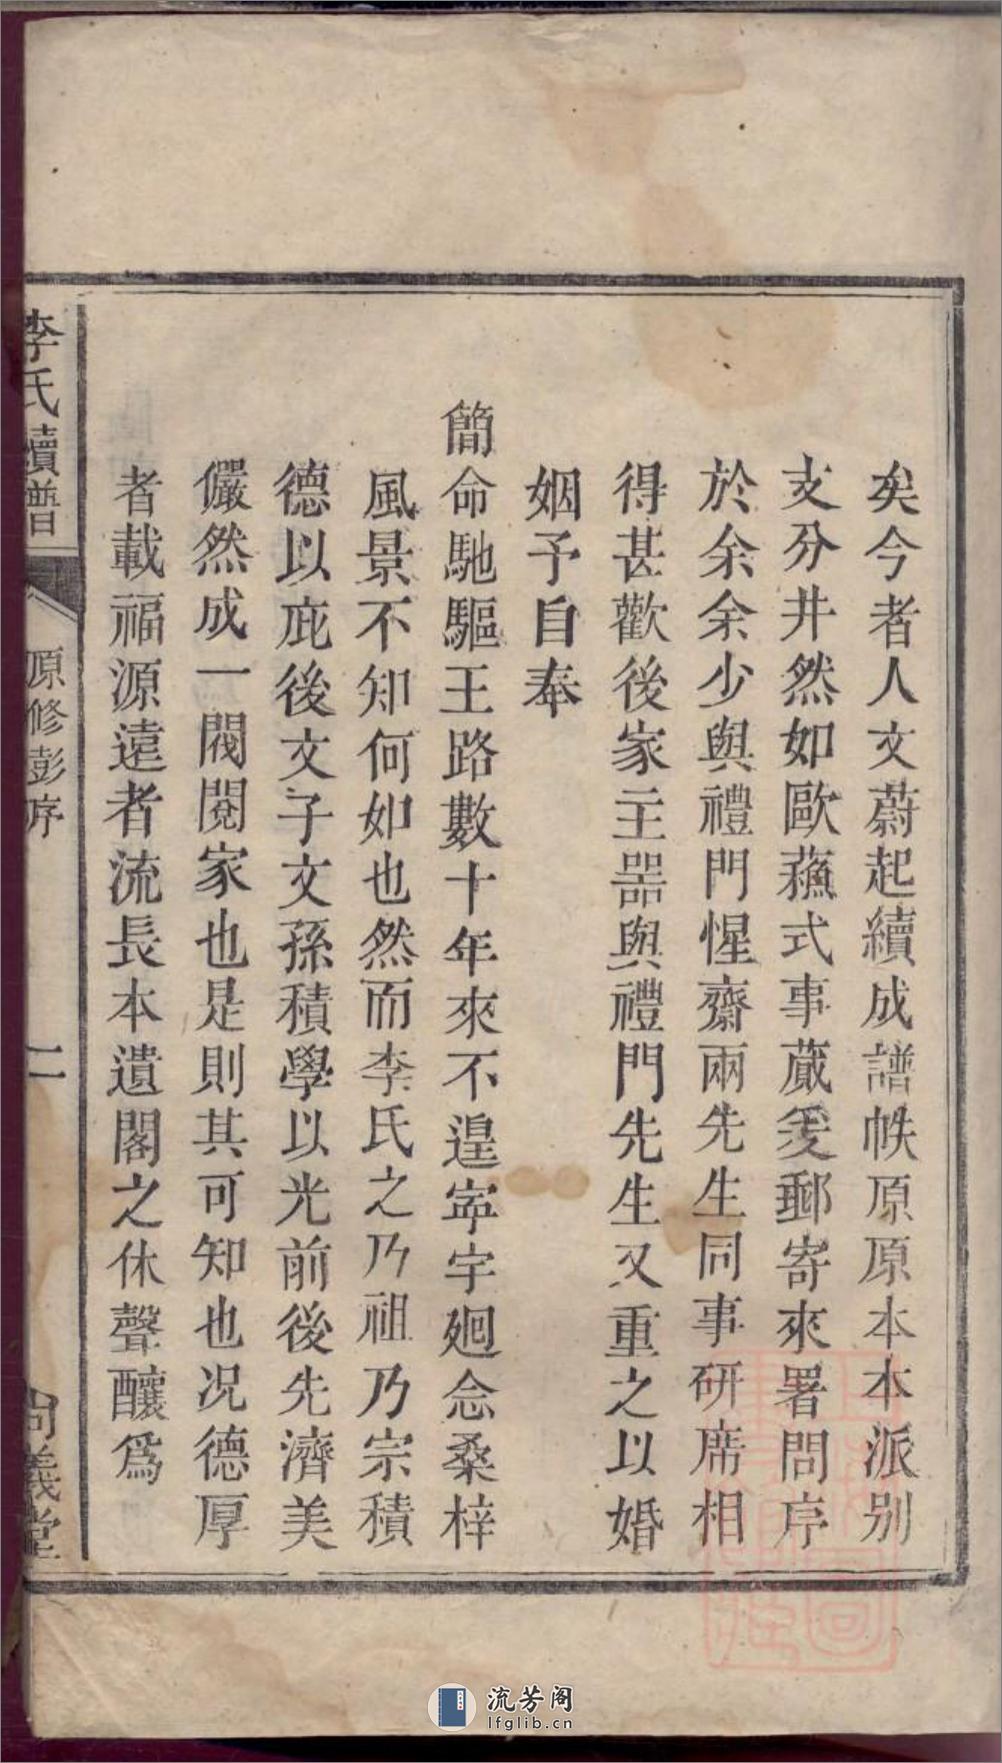 矣今者人文蔚起續成譜帙原原本本派别
支分井然如歐蘓式事蕆爰郵寄來署問序
於余余少與禮門惺齋兩先生同事研席相
得甚歡後家主器與禮門先生又重之以婚
姻予自奉
簡命馳驅王路數十年來不遑寧宇廻念桑梓
風景不知何如也然而李氏之乃祖乃宗積
德以庇後文子文孫積學以光前後先濟美
儼然成一閥閱家也是則其可知也况德厚
者載福源遠者流長本遺閣之休聲釀爲
李氏續譜
原修彭序
二
尚義堂
流芳阁
lfglib.cn